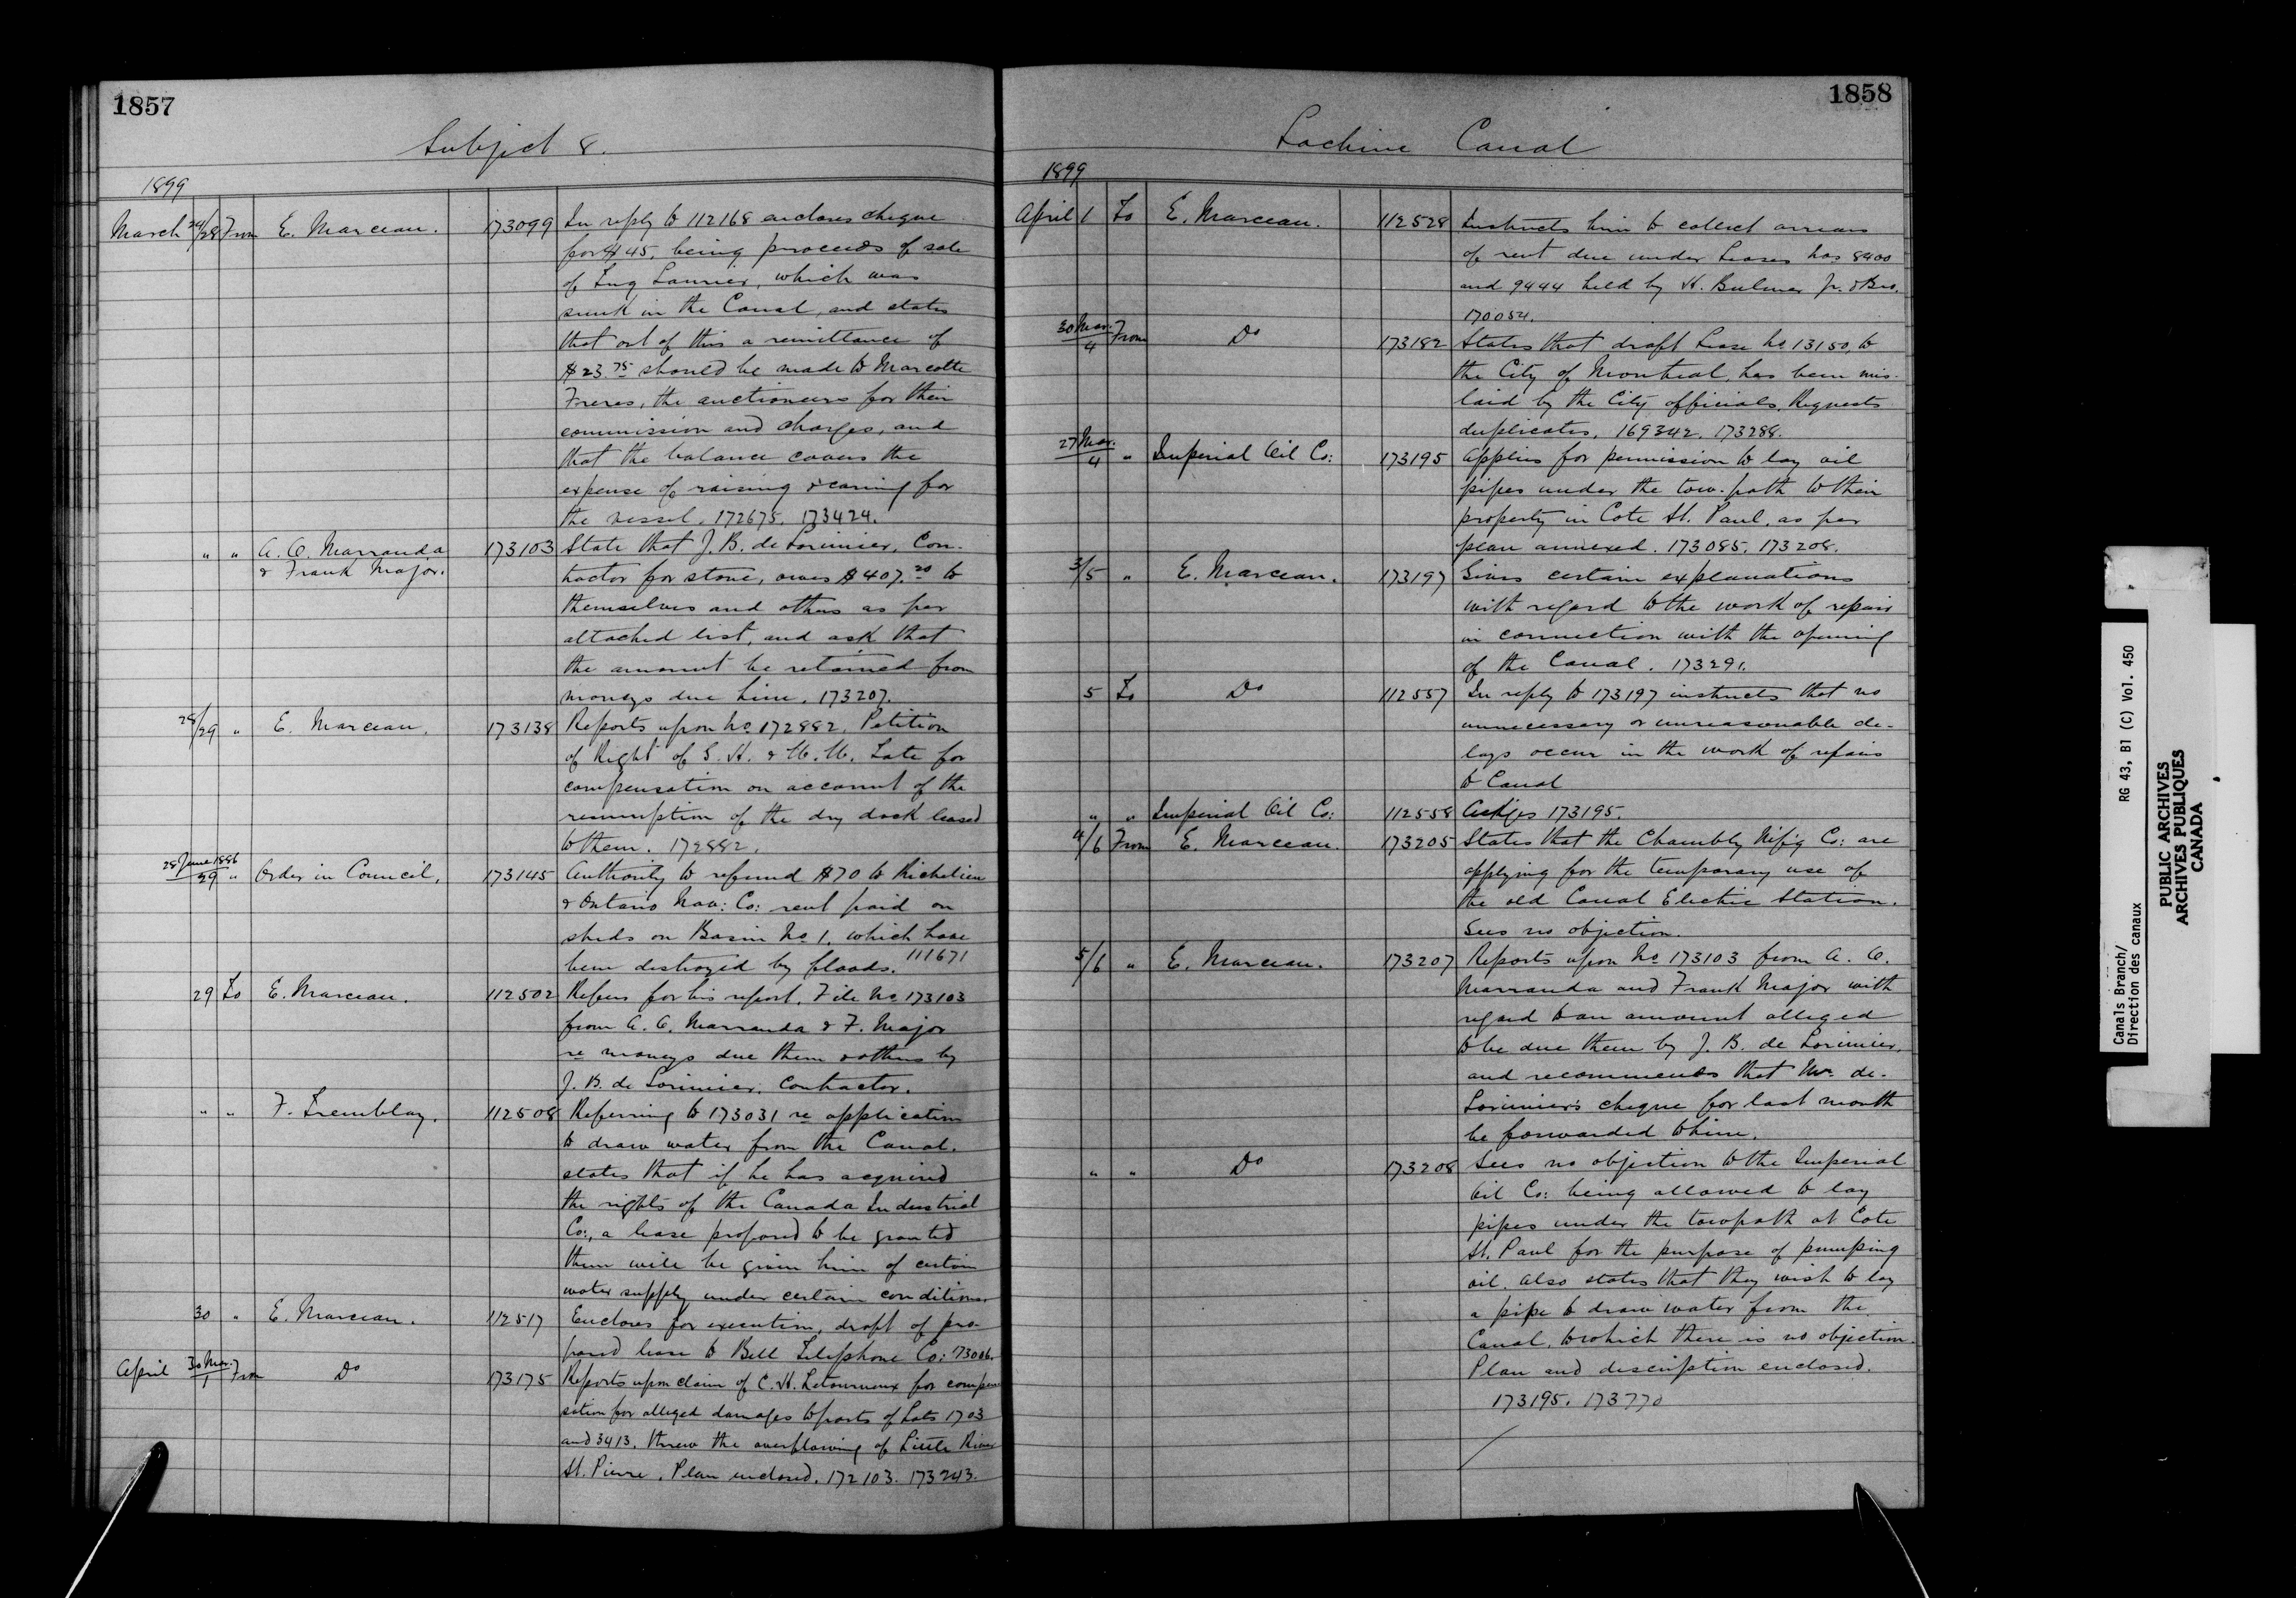 1857
Subject 8.
1899
March 24/28 From E. Marceau. 173099 In reply to 112168 encloses cheque
for $45, being proceeds of sale
of Tug Laurier, which was
sunk in the Canal, and states
that out of this a remittance of
$23.75 should be made to Marcotte
Freres, the auctioneers for their
commission and charges, and
that the balance covers the
expense of raising & caring for
the vessel. 172675. 173424.
" " A. O. Marranda 173103 State that J. B. de Lorimier, Con-
& Frank Major. tractor for stone, owes $407.20 to
themselves and others as per
attached list, and ask that
the amount be retained from
moneys due him. 173207.
28/29 " E. Marceau. 173138 Reports upon No 172882, Petition
of Right of S. H. & Tate for
compensation on account of the
resumption of the dry dock leased
to them. 172882.
28 June 1886
29 " Order in Council. 173145 Authority to refund $70 to Richelieu
& Ontario Nav: Co: rent paid on
sheds on Basin No 1, which have
been destroyed by floods. 111671
29 To E. Marceau. 112502 Refers for his report, File No 173103
from A. O. Marranda & F. Major
re moneys due them & others by
J. B. de Lorimier, Contractor.
" " F. Tremblay. 112508 Referring to 173031 re application
to draw water from the Canal.
states that if he has acquired
the rights of the Canada Industrial
Co:, a lease proposed to be granted
them will be given him of certain
water supply under certain conditions.
30 " E. Marceau. 112517 Encloses for execution, draft of pro-
posed lease to Bell Telephone Co: 73006.
April 30 Mar./1 From Do 173175 Reports upon claim of C. H. Letourneux for compen
sation for alleged damages to parts of Lots 1703
and 3413, threw the overflowing of Little River
St. Pierre. Plan enclosed. 172103. 173243.
1858
Lachine Canal
1899
April 1 To E. Marceau. 112528 Instructs him to collect arrears
of rent due under Leases Nos 8400
and 9444 held by H. Bulmer Jr. & Bro.
170054.
30 Mar./4 From Do 173182 States that draft Lease No 13150, to
the City of Montreal, has been mis-
laid by the City officials. Requests
duplicates. 169342. 173288.
27 Mar./4 " Imperial Oil Co: 173195 Applies for permission to lay oil
pipes under the tow-path to their
property in Cote St. Paul, as per
plan annexed. 173085. 173208.
3/5 " E. Marceau. 173197 Gives certain explanations
with regard to the work of repairs
in connection with the opening
of the Canal. 173291.
5 To Do 112557 In reply to 173197 instructs that no
unnecessary or unreasonable de-
lays occur in the work of repairs
to Canal
" " Imperial Oil Co: 112558 Ackges 173195.
4/6 From E. Marceau. 173205 States that the Chambly Mf'g Co: are
applying for the temporary use of
the old Canal Electric Station.
Sees no objection.
5/6 " E. Marceau. 173207 Reports upon No 173103 from A. O.
Marranda and Frank Major with
regard to an amount alleged
to be due them by J. B. de Lorimier,
and recommends that Mr. de-
Lorimier's cheque for last month
be forwarded to him.
" " Do 173208 Sees no objection to the Imperial
Oil Co: being allowed to lay
pipes under the towpath at Cote
St. Paul for the purpose of pumping
oil. Also states that they wish to lay
a pipe to draw water from the
Canal, to which there is no objection.
Plan and description enclosed.
173195. 173770
Canals Branch/ RG 43, B1 (C) Vol. 450
Direction des canaux
PUBLIC ARCHIVES
ARCHIVES PUBLIQUES
CANADA